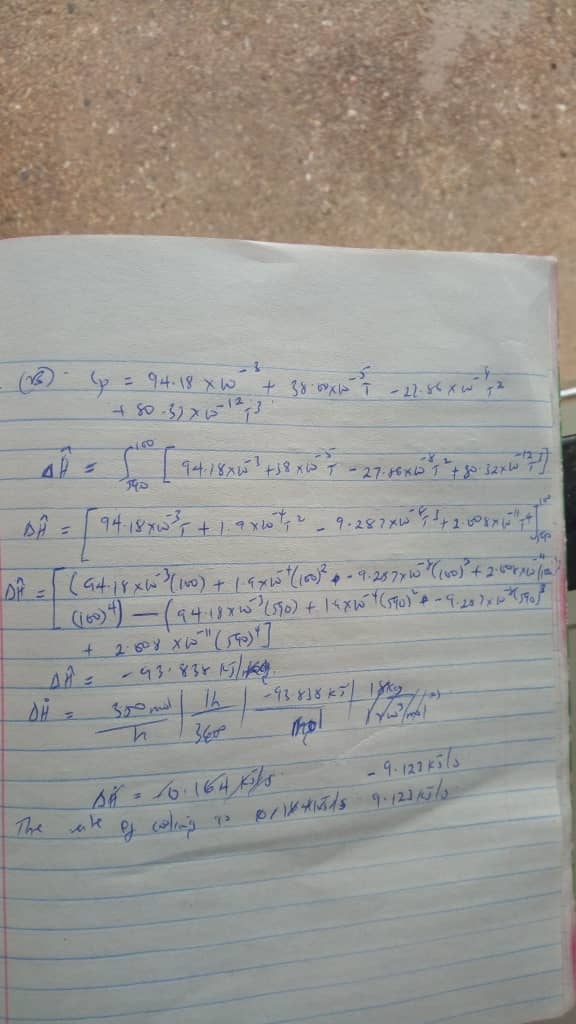 (B). Cp = 94.18 x 10⁻³ + 38.00x10⁻⁵T - 27.86 x 10⁻⁸T²
+ 80.32 x 10⁻¹²T³
ΔĤ = ∫₅₉₀¹⁰⁰ [94.18x10⁻³ + 38 x10⁻⁵T - 27.86x10⁻⁸T² + 80.32x10⁻¹²T³]
ΔĤ = [94.18x10⁻³T + 1.9x10⁻⁴T² - 9.287x10⁻⁸T³ + 2.008x10⁻¹¹T⁴]¹⁰⁰₅₉₀
ΔĤ = [(94.18x10⁻³(100) + 1.9x10⁻⁴(100)² - 9.287x10⁻⁸(100)³ + 2.008x10⁻¹¹
(100)⁴) — (94.18x10⁻³(590) + 1.9x10⁻⁴(590)² - 9.287x10⁻⁸(590)³
+ 2.008 x10⁻¹¹(590)⁴]
ΔĤ = -93.838 KJ/
ΔḢ = 350 mol/h | 1h/3600 | -93.838 KJ/mol | 18kg
ΔḢ = -0.164 KJ/s -9.123 KJ/s
The rate of cooling is 9.123 KJ/s